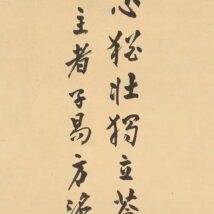 心猶壯獨立蒼
主者子昜方